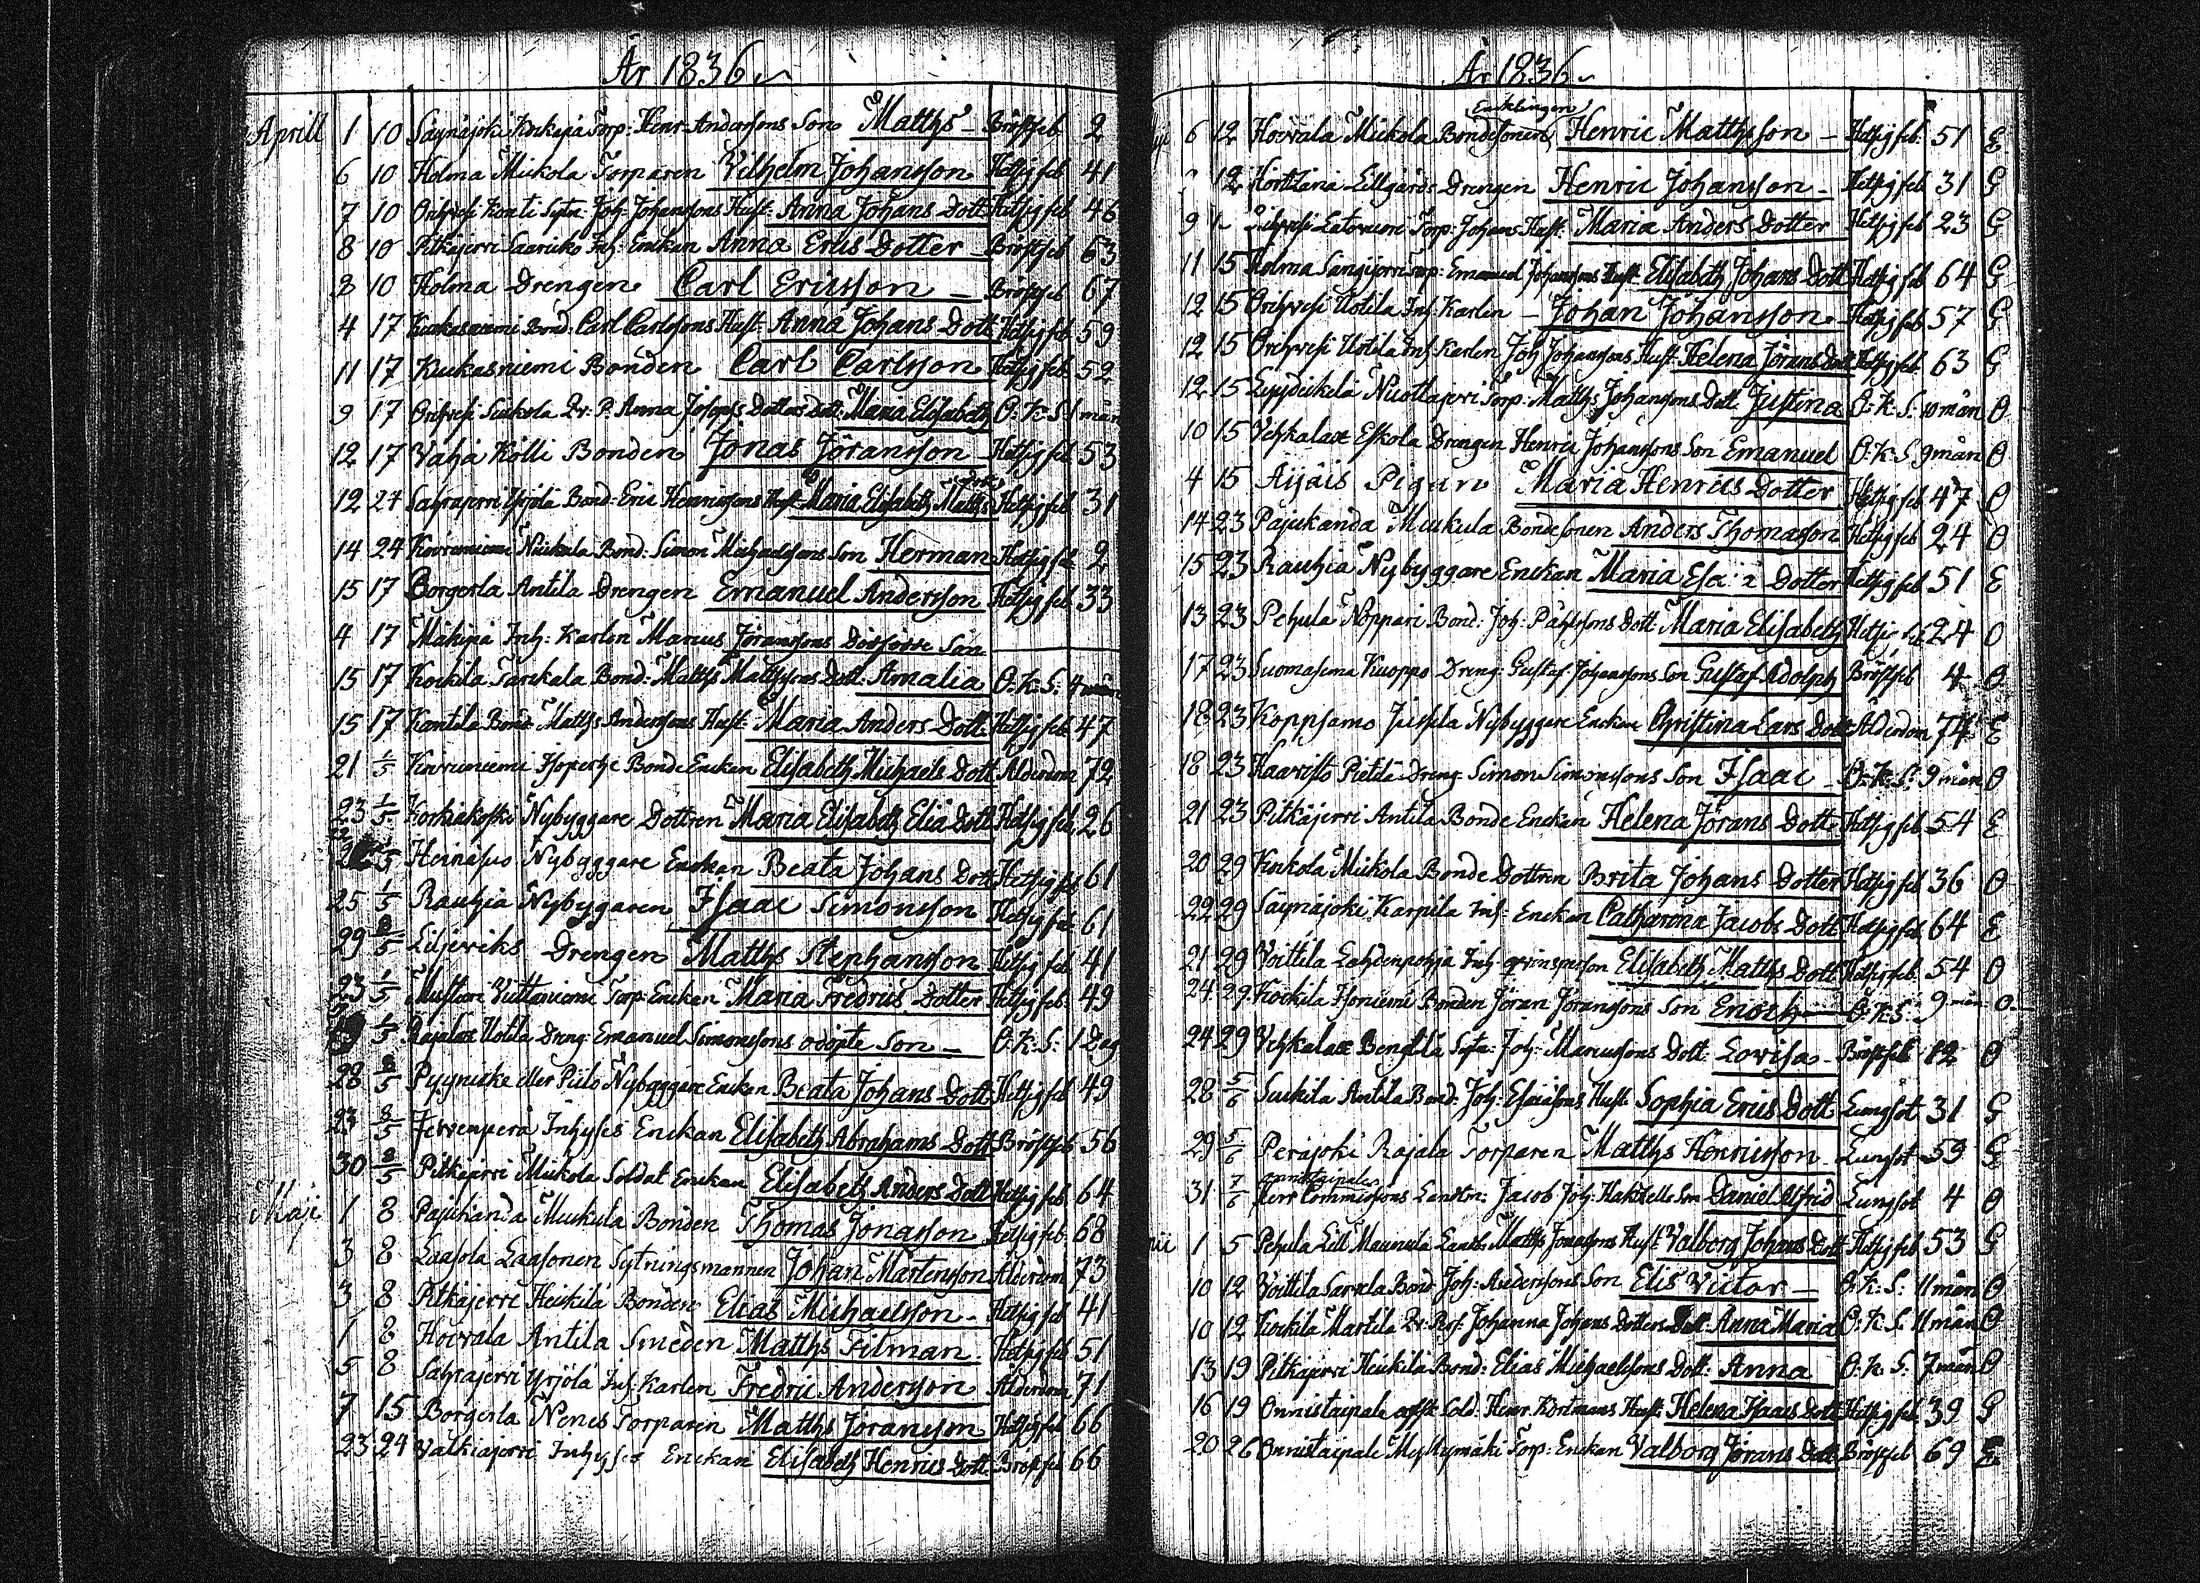 År 1836
Aprill 1 10 Säynäjoki Korkeja Torp: Henr Anderssons Son Matths Bröstfeb 2
6 10 Holma Mickola Torparen Vilhelm Johansson Hetsig feb 41
7 10 Orihvesi Konti Sytn: Joh: Johanssons Hust: Anna Johans Dott Hetsig feb 46
8 10 Pitkäjerri Saarikko Inh: Enckan Anna Erics Dotter Bröstfeb 63
8 10 Holma Drengen Carl Ericsson Bröstfeb 67
4 17 Kuckasniemi Bond: Carl Carlssons Hust: Anna Johans Dott Hetsig feb 59
11 17 Kuckasniemi Bonden Carl Carlsson Hetsig feb 52
9 17 Orihvesi Suckola Qv: P: Anna Josephs Dotters Dott: Maria Elisabeth O: K: S: 1 mån
12 17 Vaha Kölli Bonden Jonas Jöransson Hetsig feb 53
12 24 Sahrajerri Yrjölä Bond: Eric Henricssons Hust: Maria Elisabeth Matths Dott Hetsig feb 31
14 24 Koivuniemi Nickula Bond: Simon Michaelssons Son Herman Hetsig feb 2
15 17 Borgerla Antila Drengen Emanuel Andersson Hetsig feb 33
4 17 Mähipä Inh: Karlen Marcus Jöranssons Dödfödde Son
15 17 Kockila Tarckala Bond: Matths Matthssons Dott: Amalia O: K: S: 4 mån
15 17 Kontila Bond Matths Anderssons Hust: Maria Anders Dott: Hetsig feb 47
21 1/5 Koivuniemi Isoperhe Bonde Enckan Elisabeth Michaels Dott Ålderdom 72
23 1/5 Korkiakoski Nybyggare Dottren Maria Elisabeth Elia Dott Hetsig feb 26
1/5 Heinäsuo Nybyggare Enckan Beata Johans Dott Hetsig feb 61
25 1/5 Rauhia Nybyggaren Isaac Simonsson Hetsig feb 61
29 8/5 Liljeriks Drengen Matths Stephansson Hetsig feb 41
23 1/5 Torp: Enckan Maria Fredrics Dotter Hetsig feb: 49
1/5 Rajalax Uotila Dreng: Emanuel Simonssons odöpte Son O: K: S: 1 Dag
28 8/5 Pyynicke eller Pulo Nybyggare Enckan Beata Johans Dott Hetsig feb 49
23 8/5 Jervenperä Inhyses Enckan Elisabeth Abrahams Dott Bröstfeb 56
30 8/5 Pitkäjerri Mickola Soldat Enckan Elisabeth Anders Dott Hetsig feb 64
Maji 1 8 Pajuhanda Muckula Bonden Thomas Jonasson Hetsig feb 68
3 8 Laasola Laasonen Sytningsmannen Johan Mårtensson Ålderdom 73
3 8 Pitkäjerri Heickilä Bonden Elias Michaelsson Hetsig feb 41
1 8 Hovvala Antila Smeden Matths Filman Hetsig feb 51
5 8 Sahrajerri Yrjölä Inh: Karlen Fredric Andersson Ålderdom 71
7 15 Borgerla Nenes Torparen Matths Jöransson Hetsig feb 66
23 24 Valkiajerri Inhyses Enckan Elisabeth Henrics Dott Bröstfeb 66
År 1836
6 12 Hovvala Mickola Bondesonen Enklingen Henric Matthsson Hetsig feb: 51 E
12 Lillgårds Drengen Henric Johansson Hetsig feb 31 G
9 Torp: Johans Hust: Maria Anders Dotter Hetsig feb 23 G
11 15 Holma Sangijerri Torp: Emanuel Johanssons Hust: Elisabeth Johans Dott Hetsig feb 64 G
12 15 Orihvesi Uotila Inh: Karlen Johan Johansson Hetsig feb 57 G
12 15 Orihvesi Uotila Inh: Karlen Joh Johanssons Hust: Helena Jörans Dott Hetsig feb 63 G
12 15 Torp: Matths Johanssons Dott: Justina O: K: S: 10 mån O
10 15 Vehkalax Eskola Drengen Henric Johanssons Son Emanuel O: K: S: 9 mån O
4 15 Äijäis Pigan Maria Henrics Dotter Hetsig feb 47 O
14 23 Pajukanda Muckula Bondesonen Anders Thomasson Hetsig feb 24 O
15 23 Rauhia Nybyggare Enckan Maria Dotter Hetsig feb 51 E
13 23 Pehula Noppari Bond: Joh: Påhlssons Dott: Maria Elisabeth Hetsig feb 24 O
17 23 Suomasema Kuoppo Dreng: Gustaf Johanssons Son Gustaf Adolph Bröstfeb 4 O
18 23 Koppsamo Jussila Nybyggare Enckan Christina Lars Dott Ålderdom 74 E
18 23 Haavisto Pietilä Dreng: Simon Simonssons Son Isaac O: K: S: 9 mån O
21 23 Pitkäjerri Antila Bonde Enckan Helena Jörans Dott: Hetsig feb 54 E
20 29 Kockola Mickola Bonde Dottren Brita Johans Dotter Hetsig feb 36 O
22 29 Säynäjoki Karpila Inh: Enckan Catharina Jacobs Dott Hetsig feb 64 E
21 29 Voittila Lahdenpohja Inh: qvinsperson Elisabeth Matths Dott Hetsig feb 54 O
24 29 Kockila Isoniemi Bonden Jöran Jöranssons Son Enoch O: K: S: 9 mån O
24 29 Vehkalax Bengtlä Sytn: Joh: Marcussons Dott: Lovisa Bröstfeb 12 O
28 5/6 Suckila Antila Bond: Joh: Esaiassons Hust: Sophia Erics Dott Lungsot 31 G
29 5/6 Peräjoki Rajala Torparen Matths Henricsson Lungsot 59 G
31 7/6 Herr Commissions Landtm: Jacob Joh: Hakzells Son Daniel Alfrid Lungsot 4 O
1 5 Pehula Lill Maunula Landb: Matths Jonassons Hust: Valborg Johans Dott Hetsig feb 53 G
10 12 Voittila Sarvela Bond: Joh: Anderssons Son Elis Victor O: K: S: 11 mån O
10 12 Kockila Martila Qv: Pers: Johanna Johans Dotters Dott: Anna Maria O: K: S: 11 mån O
13 19 Pitkäjerri Heickilä Bond: Elias Michaelssons Dott: Anna O: K: S: 7 mån O
16 19 Onnistaipale afsk: Sold: Henr: Körtmans Hust: Helena Isaacs Dott Hetsig feb 39 G
20 26 Onnistaipale Myllymäki Torp: Enckan Valborg Jörans Dott Bröstfeb 69 E